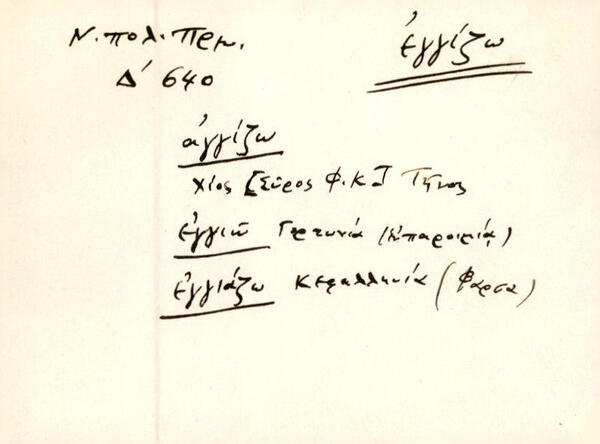 Ν. πολ. Πρμ.
Δ' 640
ἐγγίζω
ἀγγίζω
Χίος [Σῦρος Φ.Κ.] Τῆνος
ἐγγιῶ Γορτυνία (παροιμία)
ἐγγιάζω Κεφαλληνία (Φάρσα)